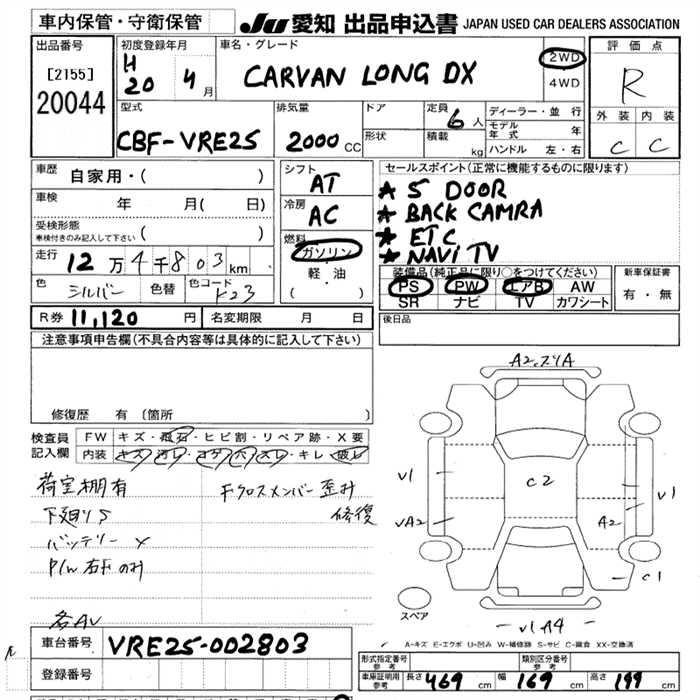 車内保管・守衛保管
JU 愛知 出品申込書 JAPAN USED CAR DEALERS ASSOCIATION
出品番号
[2155]
20044
初度登録年月
H
20 4月
車名・グレード
CARVAN LONG DX
2WD
4WD
評価点
R
外装 内装
C C
型式
CBF-VRE25
排気量
2000 CC
ドア
形状
定員
6人
積載
kg
ディーラー・並行
モデル年式 年
ハンドル 左・右
車歴
自家用・( )
車検
年 月( 日)
受検形態
車検付きのみ記入して下さい( )
走行 12万4千803km
色 シルバー 色替 色コード K23
シフト
AT
冷房
AC
燃料
ガソリン
軽・油
( )
セールスポイント(正常に機能するものに限ります)
★ 5 DOOR
★ BACK CAMRA
★ ETC
★ NAVI TV
装備品(純正品に限り○をつけてください)
PS PW エアB AW
SR ナビ TV カワシート
新車保証書
有・無
R券 11,120 円 名変期限 月 日
後日品
注意事項申告欄(不具合内容等は具体的に記入して下さい)
修復歴 有(箇所 )
検査員
記入欄
FW キズ・飛石・ヒビ割・リペア跡・X要
内装 キズ・汚レ・コゲ・穴・スレ・キレ・破レ
荷室棚有
下廻りS
バッテリー X
P/W右Fのみ
各AU
Fクロスメンバー歪み
修復
A2.スリA
V1
VA2
C2
V1
A2
C1
スペア
V1 A4
A-キズ E-エクボ U-凹み W-補修跡 S-サビ C-腐食 XX-交換済
車台番号 VRE25-002803
登録番号
形式指定番号
参考
類別区分番号
参考
車庫証明用
参考
長さ 469 cm 幅 169 cm 高さ 199 cm